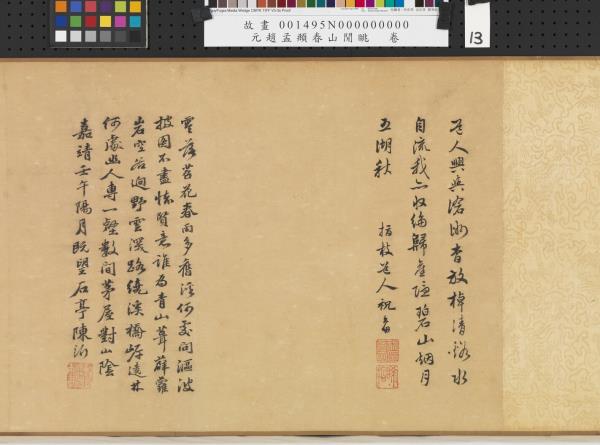 故畫 001495N000000000
元趙孟頫春山閒眺 卷
13
道人興與滄洲杳放棹清谿水
自流我亦收綸歸屋隱碧山烟月
五湖秋
枝道人祝
零落苔花春雨多舊溪何處問漚波
披圖不盡懷賢意誰為青山葺薜蘿
岩空谷迥野雲深路繞溪橋岸遠林
何處幽人專一壑數間茅屋對山陰
嘉靖壬午陽月既望石亭陳沂